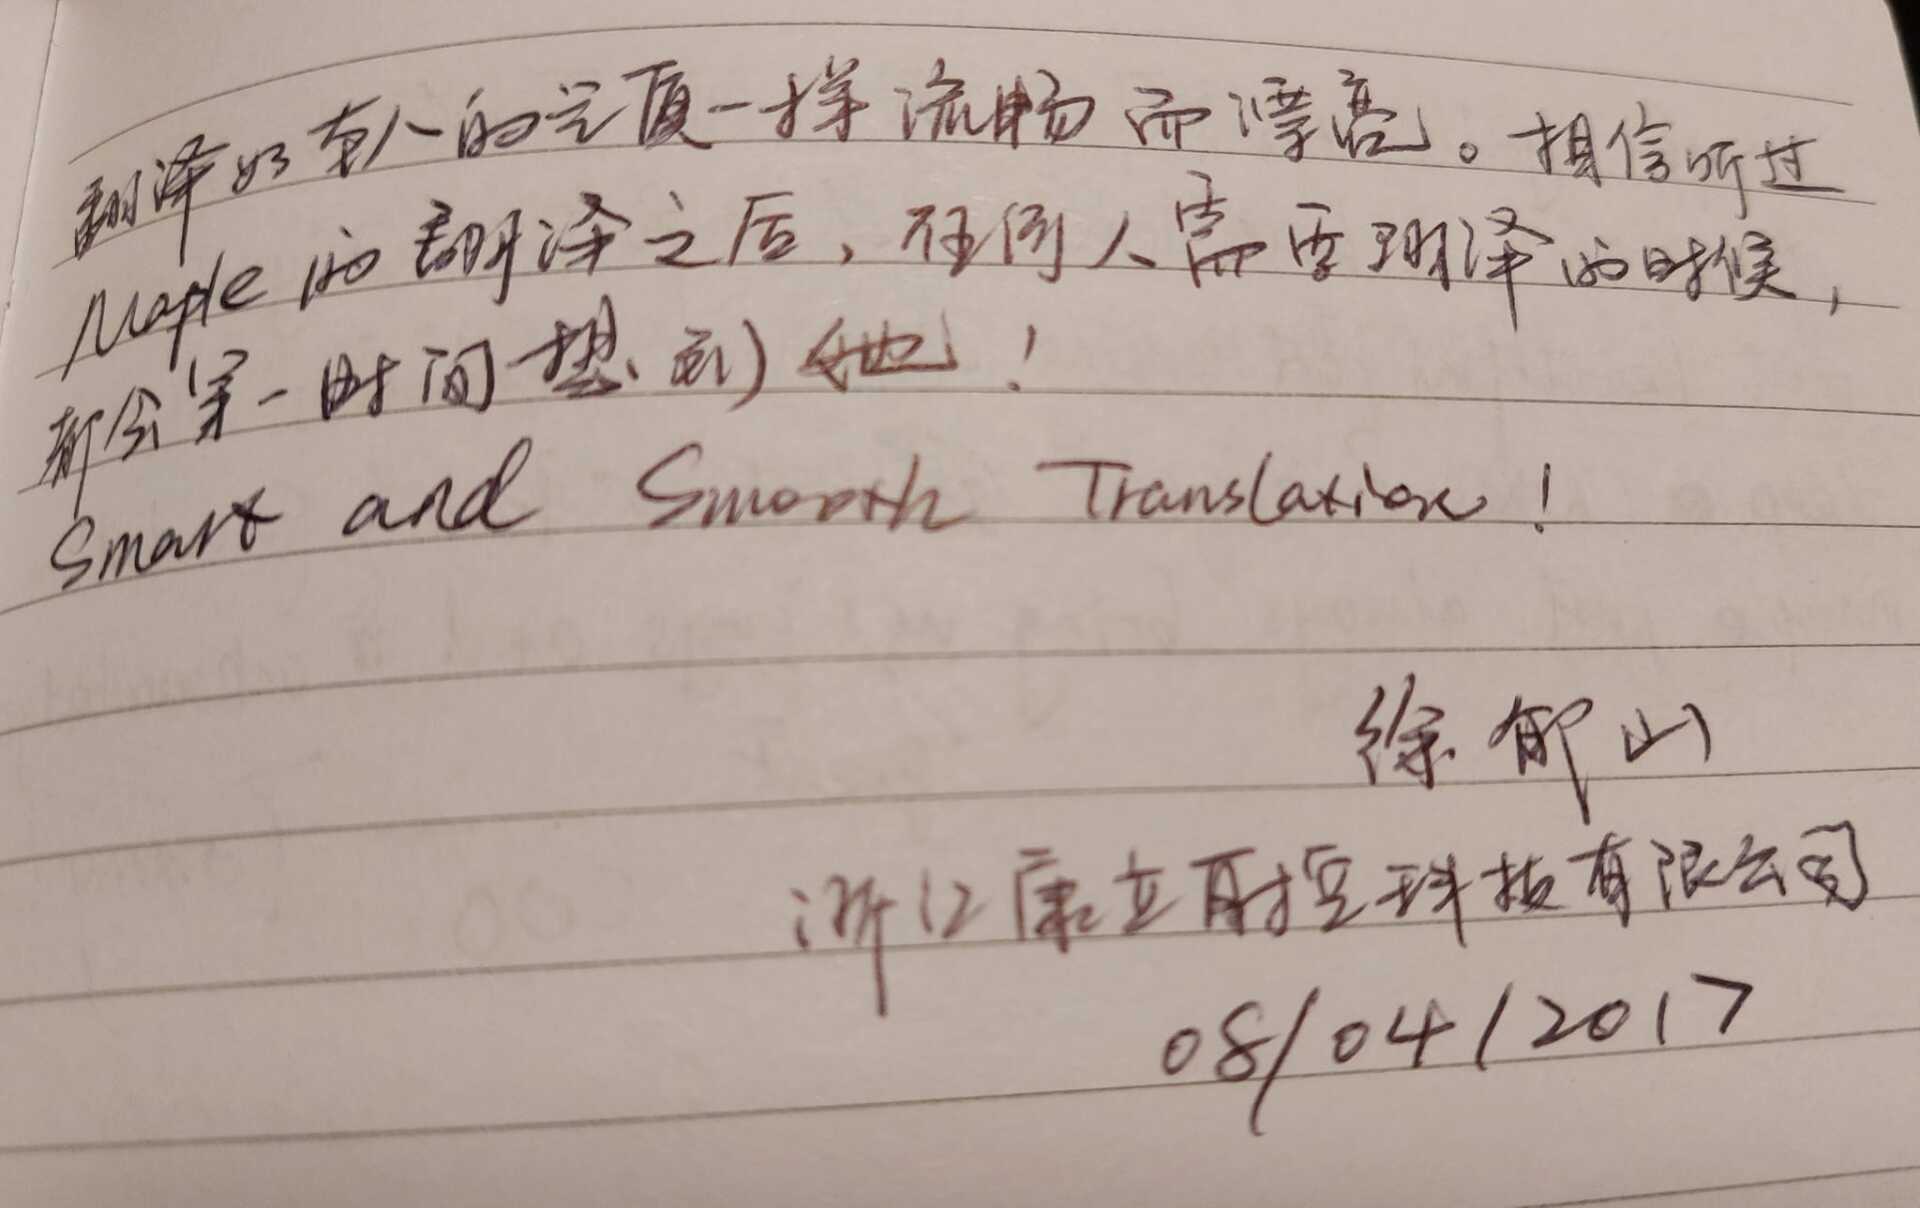 翻译如本人的容颜一样流畅而漂亮。相信听过
Maple的翻译之后，任何人需要翻译的时候，
都会第一时间想到她！
Smart and Smooth Translation！
徐郁山
浙江康立自控科技有限公司
08/04/2017